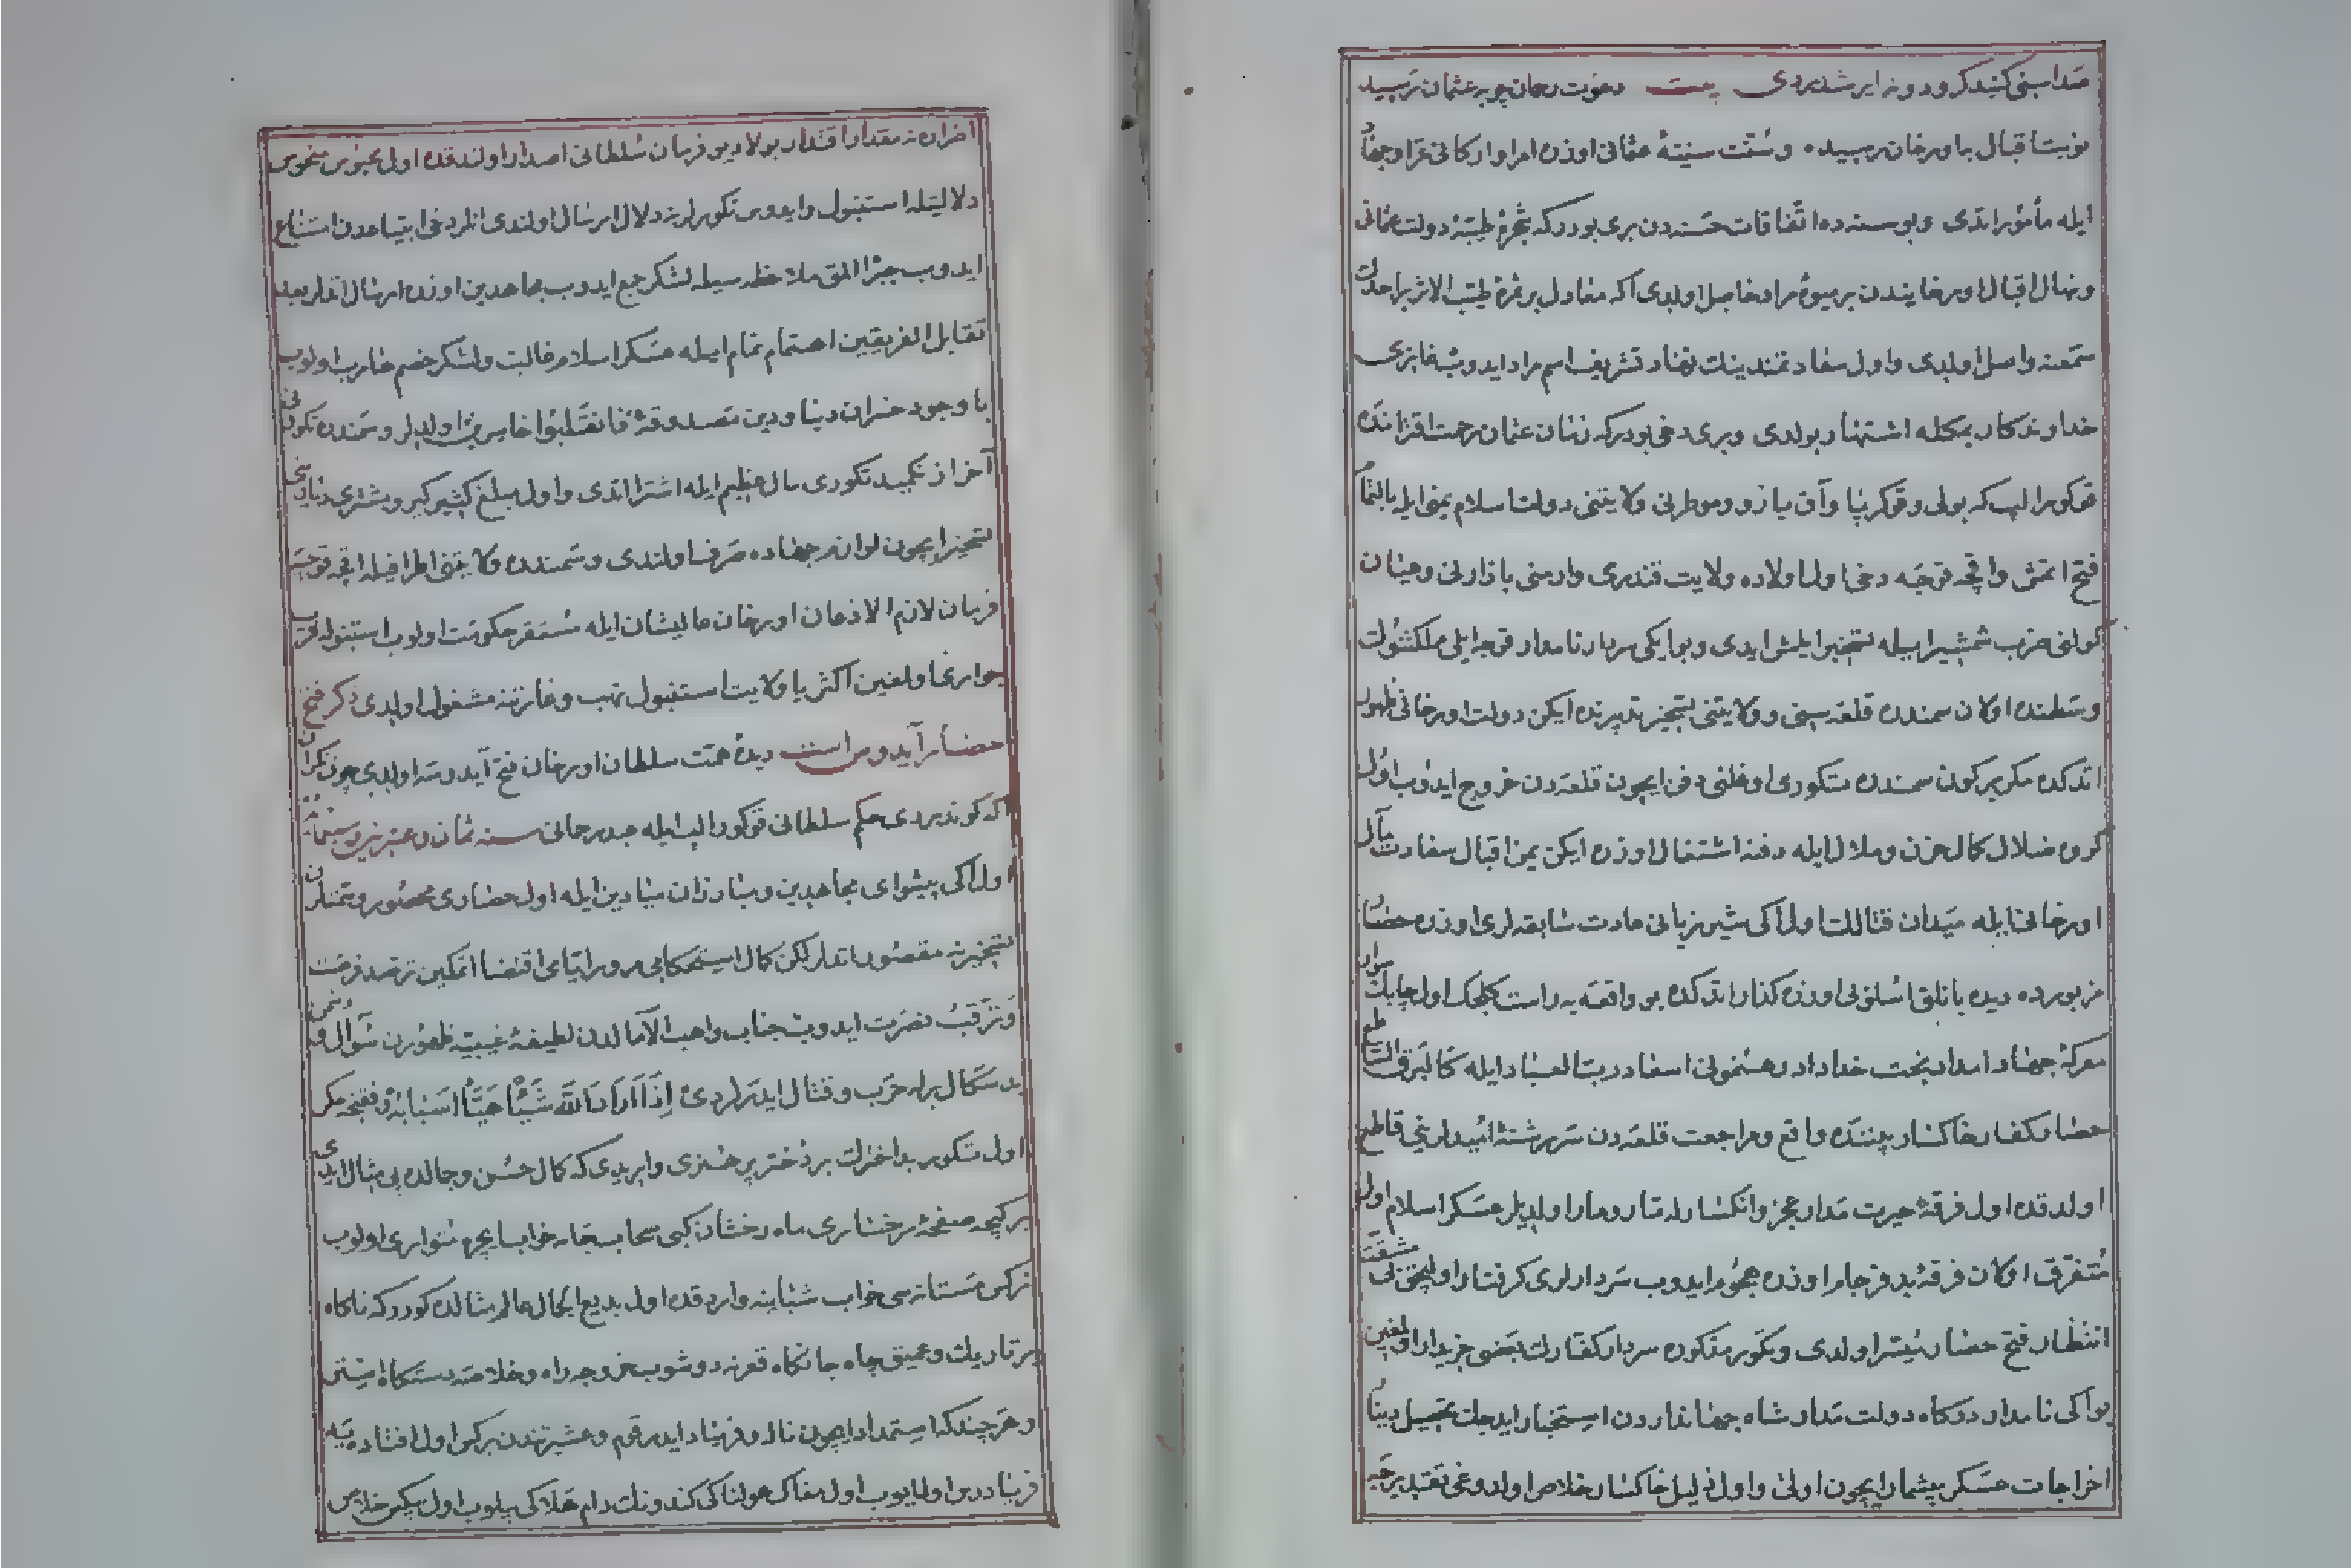 صداسنی کنبد کردونه ایرشدیردی بیت دعوت رحمان چو به عثمان رسید
نوبت اقبال باورخان رسیده وسنت سنیهٔ عثمانی اوزره امرا وارکانی غزا وجهاد
ایله مأمور اتدی وبو سنه ده اتفاقات حسنه دن بری بودرکه شجرهٔ طیبهٔ دولت عثمانی
ونهال اقبال اورخانیدن بر میوهٔ مراد حاصل اولدی اکه معادل بر ثمرهٔ طیب الاثر
سمعنه واصل اولدی واول سعادتمندینک تشریف اسم مراد ایدوب غازی
خداوندکار دیمکله اشتهار بولدی وبری دخی بودرکه زمان عثمان رحمت اقتراننده
قوکور الپ که بولی وقوکرپا وآق یازو ومودرنی ولایتنی دولت اسلام یمنی ایله بالتمام
فتح اتمش واقچه قوجه دخی اول اولاده ولایت قندری وارمنی بازارنی وعیان
کولنی ضرب شمشیر ایله تسخیر ایلمش ایدی وبو ایکی سردار نامدار قوجه ایلی مملکتنک
وسطنده اولان سمندره قلعه سنی وولایتنی تسخیر تدبیرنده ایکن دولت اورخانی ظهور
اتدکده مکر بر کون سمندره تکوری اوغلنی دفن ایچون قلعه دن خروج ایدوب اول
کروه ضلال کمال حزن وملال ایله دفنه اشتغال اوزره ایکن یمن اقبال سعادت مآل
اورخانی ایله میدان قتالک اول ایکی شیر ژیانی عادت سابقه لری اوزره حصار
مزبورده دیده بانلق اسلوبی اوزره کذار اتدکده بو واقعه یه راست کلجک اول چابک سوار
معرکهٔ جهاد امداد بخت خداداد رهنمونی اسعاد رب العباد ایله کالبرق الساطع
حصار کفار خاکسار بیننده واقع ومراجعت قلعه دن سررشتهٔ امیدلرینی قاطع
اولدقده اول فرقهٔ حیرت مدار عجز وانکسار له تارومار اولدیلر عسکر اسلام اول
متفرق اولان فرقهٔ بدفرجام اوزره هجوم ایدوب سردارلری کرفتار اولیجق بی مشقت
انتظار فتح حصار میسر اولدی وتکور مذکوره سردار کفارک بعضی خریدار اولمغین
بو ایکی نامدار درکاه دولت مدار شاه جهانداردن استخبار ایدیجک تحصیل دینار
اخراجات عسکر بیشمار ایچون اولی واول ذلیل خاکسار خلاص اولدوغی تقدیرجه
اضرارنه مقدار اقتدار بولا دیو فرمان سلطانی اصدار اولندقده اول محبوس منحوس
دلالتیله استنبول وایدوس تکورلرینه دلال ارسال اولندی انلر دخی ابتیاعدن امتناع
ایدوب جبرا المق ملاحظه سیله لشکر جمع ایدوب مجاهدین اوزره ارسال اتدلر بعد
تقابل الفریقین اهتمام تمام ایله عسکر اسلام غالب ولشکر خصم هارب اولوب
باوجود خسران دنیا ودین مصدوقهٔ فانقلبوا خاسرین اولدیلر وسمندره تکورنی
آخر ازنکمید تکوری مال عظیم ایله اشترا اتدی واول مبلغ کثیر کبر ومشتری
تسخیر ایچون لوازم جهاده صرف اولندی وسمندره ولایتی اطرافیله اقچه قوجه یه
فرمان لازم الاذعان اورخان عالیشان ایله مستقر حکومت اولوب استنبوله قرب
جواری اولمغین اکثریا ولایت استنبول نهب وغارتنه مشغول اولدی ذکر فتح
حصار آیدوس است دیدهٔ همت سلطان اورخان فتح آیدوسه اولدی چون نکران
اکه کوندردی حکم سلطانی قوکور الپ ایله عبدرحمانی سنه ثمان وعشرین وسبعمائه
اول ایکی پیشوای مجاهدین ومبارزان میادین ایله اول حصاری محصور ومتمنلرن
تسخیرنه مقصور اتدلر لکن کمال استحکامی مرور ایامی اقتضا اتمکین ترصد فرصت
وترقب نصرت ایدوب جناب واهب الآمالدن لطیفهٔ غیبیه ظهورن سؤال و دشمن
بدسکال برله حرب وقتال ایدرلردی اذا اراد الله شیئا هیأ اسبابه وفقنجه مکر
اول تکور بد اخترک بر دختر پر هنری وار یدی که کمال حسن وجمالده بی مثال ایدی
بر کیجه صفحهٔ رخساری ماه رخشان کبی سحاب حجاب خوابا یچره متواری اولوب
نرکس مستانه سی خواب شبانه واردقده اول بدیع الجمال عالم مثالده کورر که ناکاه
بر تاریک وعمیق چاه جانکاه قعرنه دوشوب خروجه راه وخلاصه دستکاه ایستر
وهر چند که استمداد ایچون ناله وفریاد ایدر قوم وعشیرتندن بر کس اول افتاده یه
فریادرس اولمایوب اول مغاک هولناکی کندونک دام هلاکی بیلوب اول بیکس خلاص